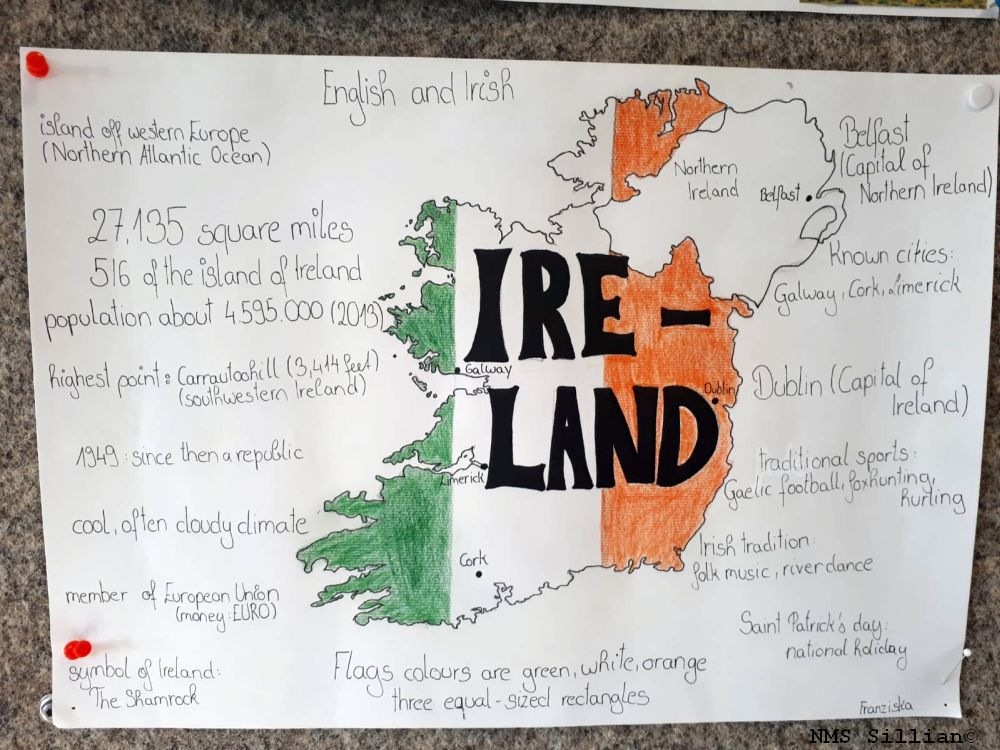 English and Irish
island off western Europe
(Northern Atlantic Ocean)
27,135 square miles
5/6 of the island of Ireland
population about 4.595.000 (2013)
highest point: Carrautoohill (3,414 feet)
(southwestern Ireland)
1949: since then a republic
cool, often cloudy climate
member of European Union
(money: EURO)
symbol of Ireland:
The Shamrock
Northern
Ireland
Belfast
IRE-
Galway
Dublin
LAND
Limerick
Cork
Belfast
(Capital of
Northern Ireland)
Known cities:
Galway, Cork, Limerick
Dublin (Capital of
Ireland)
traditional sports:
Gaelic football, foxhunting,
hurling
Irish tradition:
folk music, riverdance
Saint Patrick's day:
national holiday
Flags colours are green, white, orange
three equal-sized rectangles
Franziska
NMS Sillian©